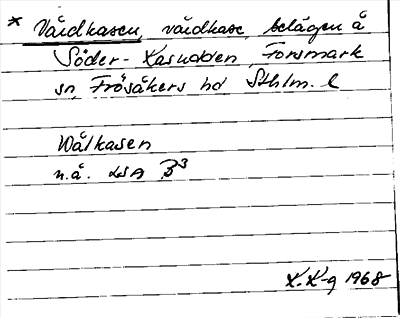 * Vårdkasen, vårdkase, belägen å
Söder-Kasudden, Forsmark
sn, Frösåkers hd Sthlm. l
Wålkasen
n.å. LSA B³
K.K-g 1968